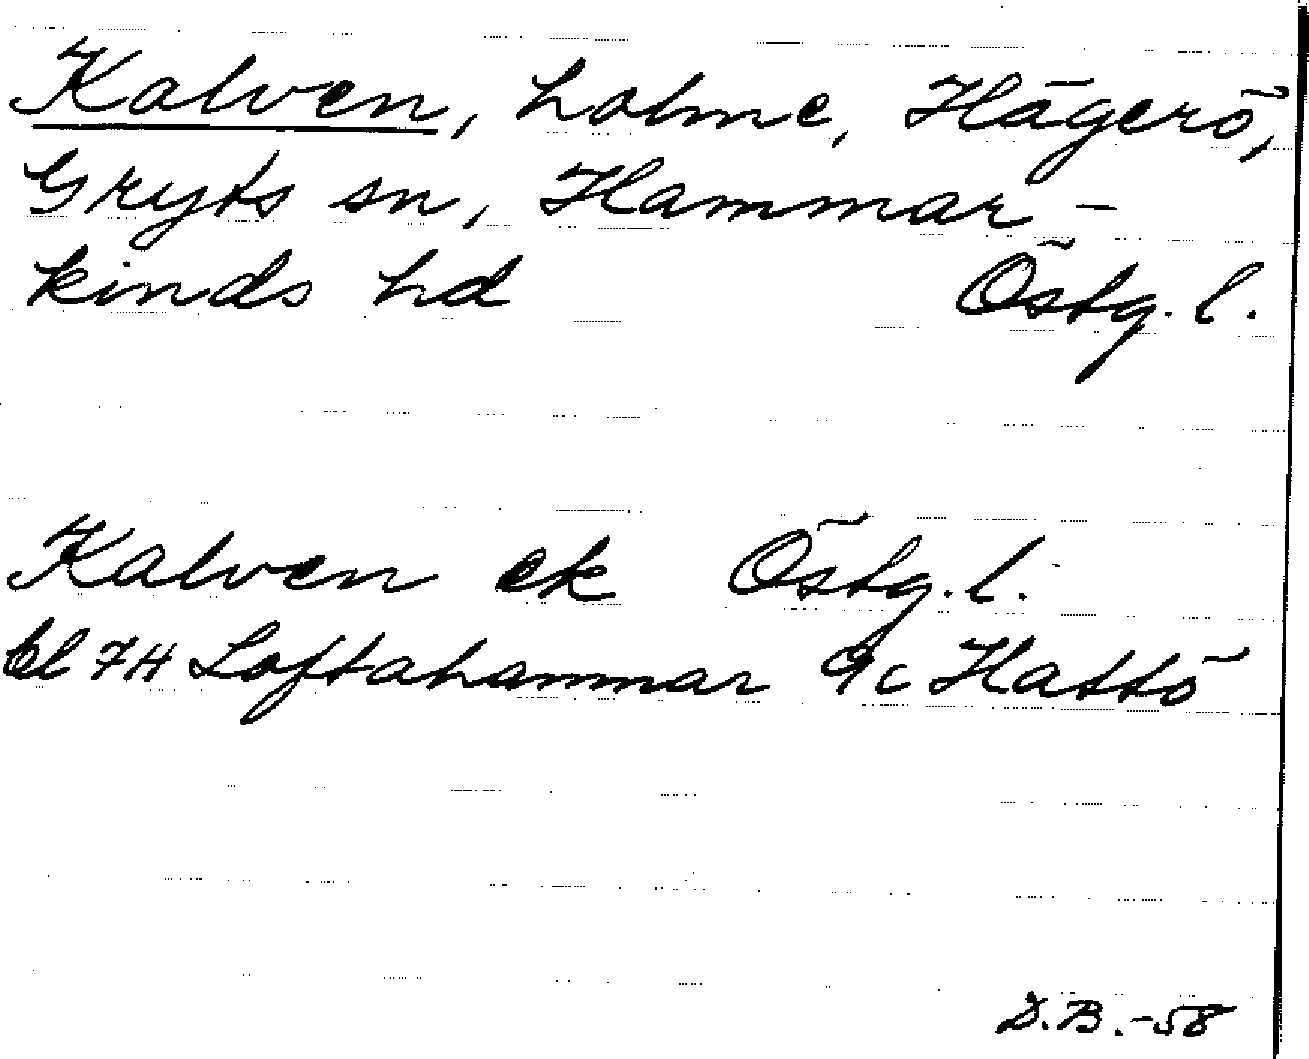 Kalven, holme, Hägerö,
Gryts sn, Hammar-
kinds hd Östg. l.
Kalven ek Östg. l.
bl 7H Loftahammar 9c Hattö
D.B.-58